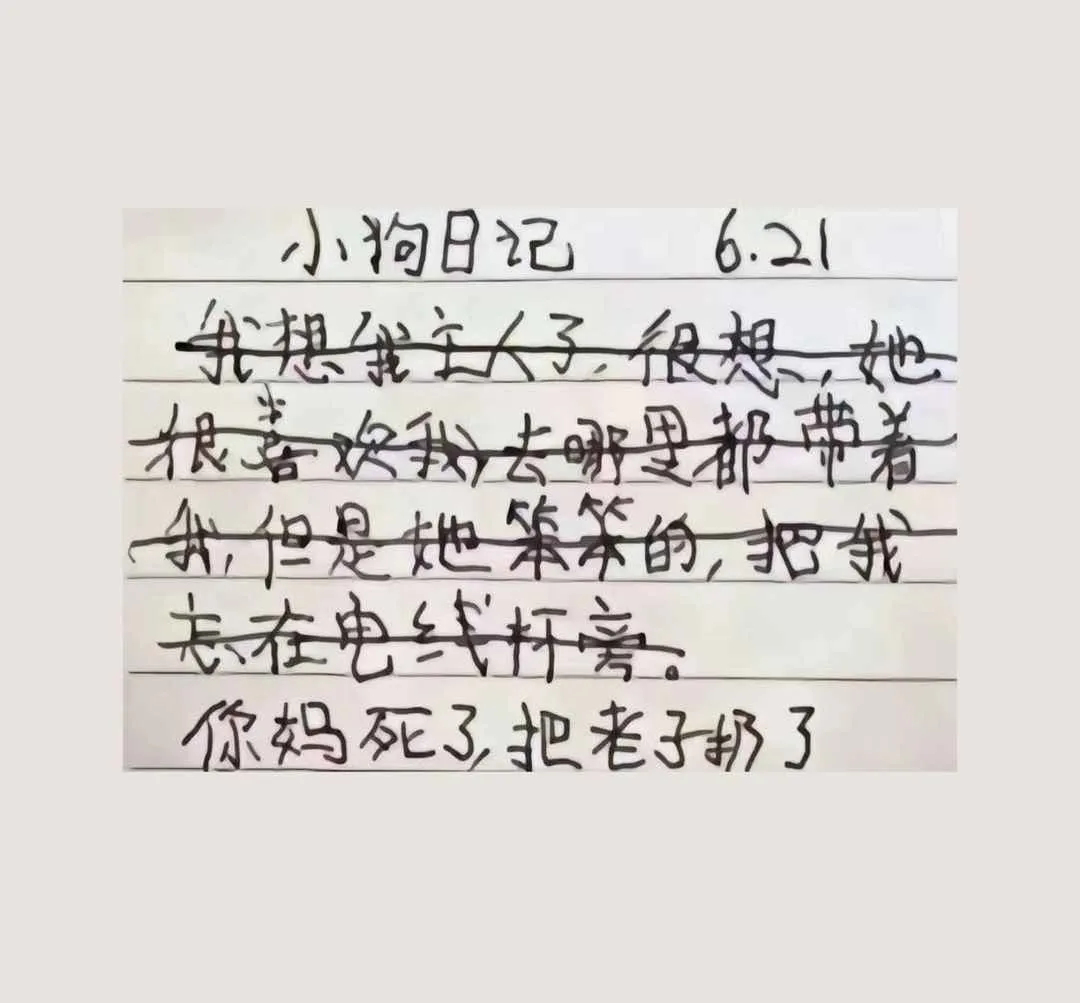 小狗日记 6.21
我想我主人了,很想,她
很喜欢我,去哪里都带着
我,但是她笨笨的,把我
忘在电线杆旁。
你妈死了,把老子扔了